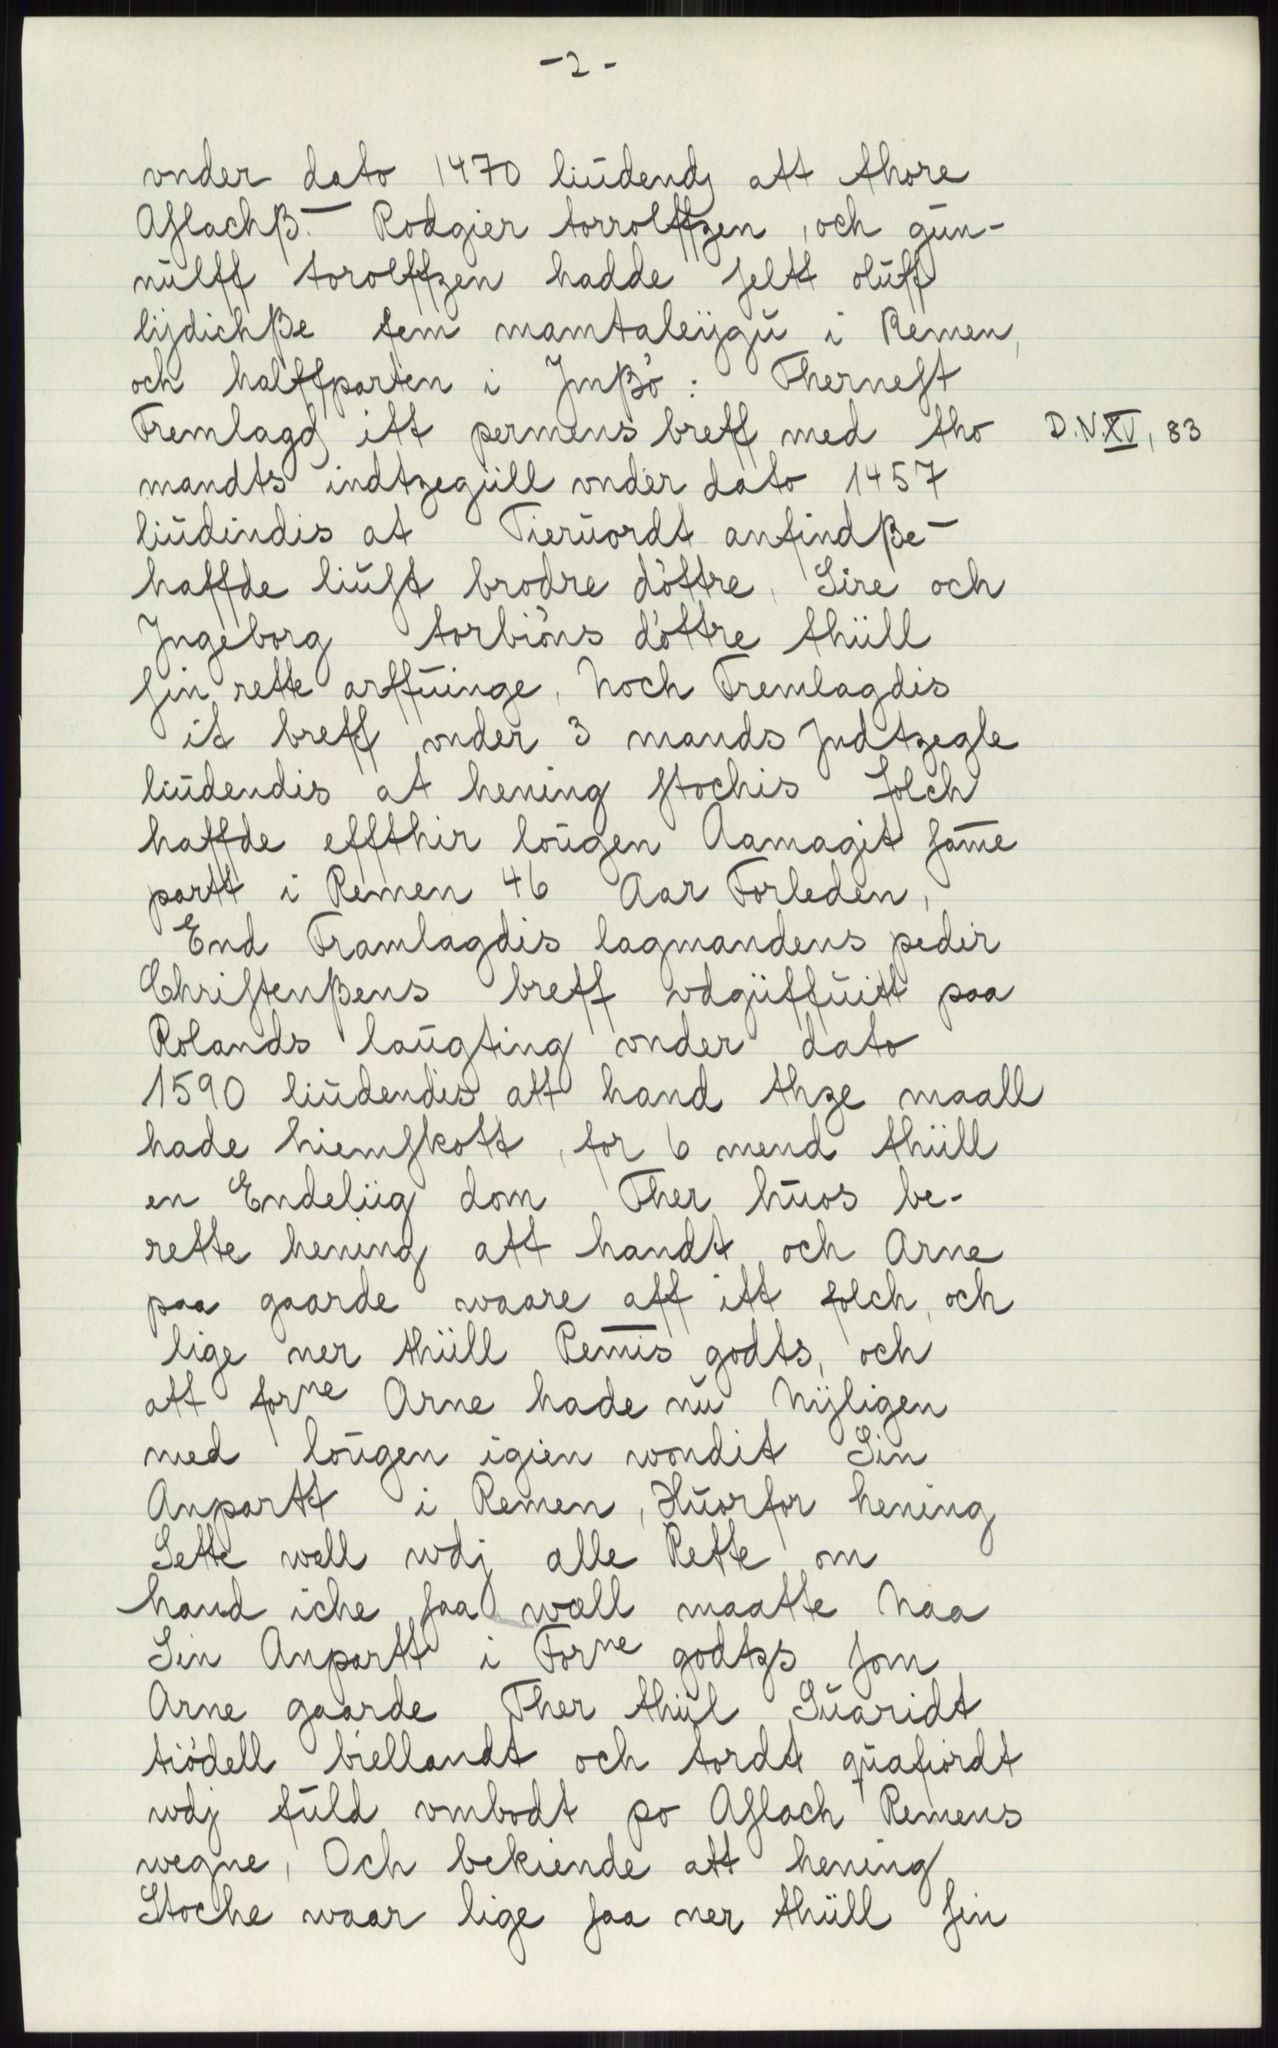 -2-
vnder dato 1470 liudendj att thore
Aslachß. Rodgier torrolffzen, och gun-
nulff torolffzen hadde seltt oluff
lijdichße fem mamtaleijgu i Remen,
och halffparten i Jmßö: Thernest
Fremlagdj itt permens breff med tho D.N.XV, 83
mandts indtzegüll vnder dato 1457
liudindis at Tieruordt anfindße
haffde liust brodre döttre, Sire och
Jngeborg torbiöns döttre thiill
sin rette arffuinge, Noch Fremlagdis
it breff vnder 3 mands Jndtzegle
liudendis at hening stochis folch
haffde effthir lougen Aamagit same
partt i Remen 46 Aar Forleden,
End Framlagdis lagmandens peder
Christenßens breff vdgiiffuitt paa
Rolands laugting vnder dato
1590 liudendis att hand thze maall
hade hiemskott, for 6 mend thiill
en Endeliig dom Ther huos be-
rette hening att handt och Arne
paa gaarde waare aff itt folch, och
lige ner thiill Remis godts, och
att forne Arne hade nu Nijligen
med lougen igien wondit Sin
Anpartt i Remen, Huorfor hening
Sette well wdj alle Rette om
hand iche saa woll maatte Naa
Sin Anpartt i Forne godtzs som
Arne gaarde Ther thiil Suaridt
tiödell biellandt och tordt quafiordt
wdj fuld vmbodt po Aslach Remens
wegne, Och bekiende att hening
Stoche waar lige saa ner thiill sin